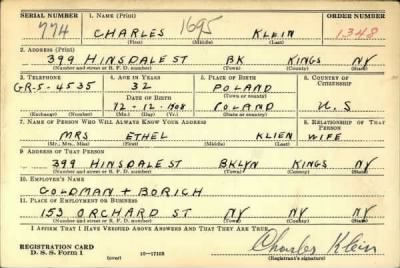 SERIAL NUMBER 1. NAME (Print) ORDER NUMBER
774 CHARLES 1695 KLEIN 1348
(First) (Middle) (Last)
2. ADDRESS (Print)
399 HINSDALE ST BK KINGS NY
(Number and street or R. F. D. number) (Town) (County) (State)
3. TELEPHONE 4. AGE IN YEARS 5. PLACE OF BIRTH 6. COUNTRY OF CITIZENSHIP
GR-5-4535 32 POLAND
DATE OF BIRTH (Town or county)
12-12-1908 POLAND U.S
(Exchange) (Number) (Mo.) (Day) (Yr.) (State or country)
7. NAME OF PERSON WHO WILL ALWAYS KNOW YOUR ADDRESS 8. RELATIONSHIP OF THAT PERSON
MRS ETHEL KLIEN WIFE
(Mr., Mrs., Miss) (First) (Middle) (Last)
9. ADDRESS OF THAT PERSON
399 HINSDALE ST BKLYN KINGS NY
(Number and street or R. F. D. number) (Town) (County) (State)
10. EMPLOYER'S NAME
GOLDMAN + BORICH
11. PLACE OF EMPLOYMENT OR BUSINESS
153 ORCHARD ST NY NY NY
(Number and street or R. F. D. number) (Town) (County) (State)
I AFFIRM THAT I HAVE VERIFIED ABOVE ANSWERS AND THAT THEY ARE TRUE.
REGISTRATION CARD
D. S. S. Form 1 (over) Charles Klein
(Registrant's signature)